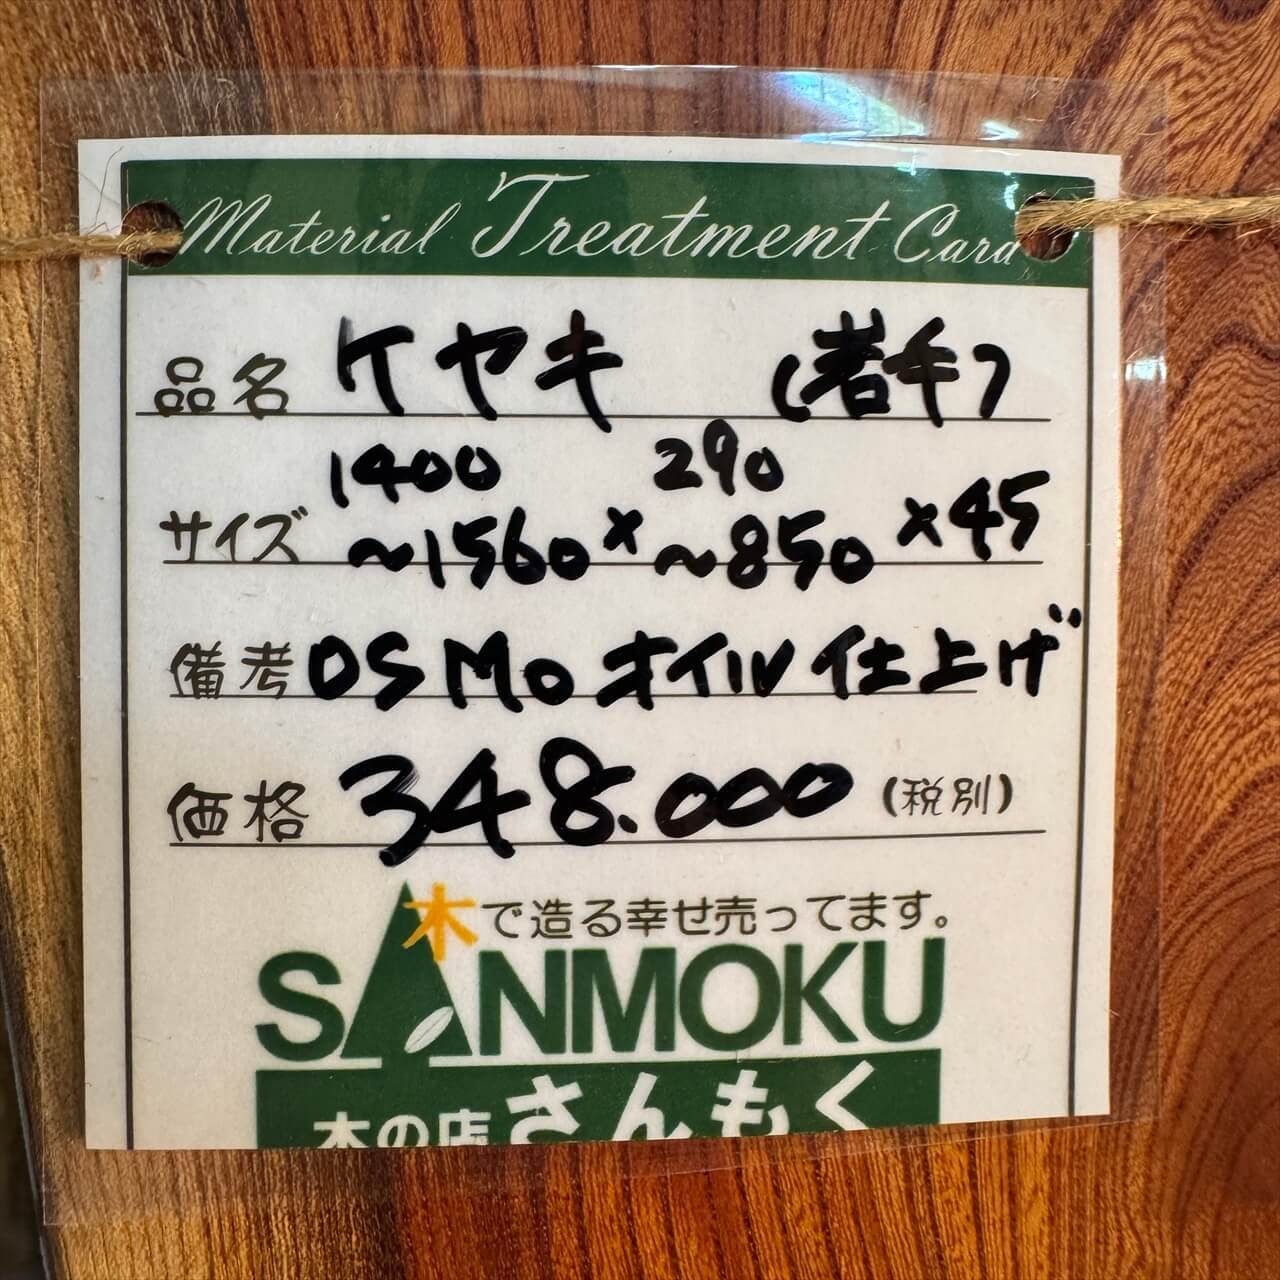 Material Treatment Card
品名 ケヤキ (岩手)
1400 290
サイズ ~1560 × ~850 × 45
備考 OSMO オイル仕上げ
価格 348.000 (税別)
木で造る幸せ売ってます。
SANMOKU
木の店 さんもく